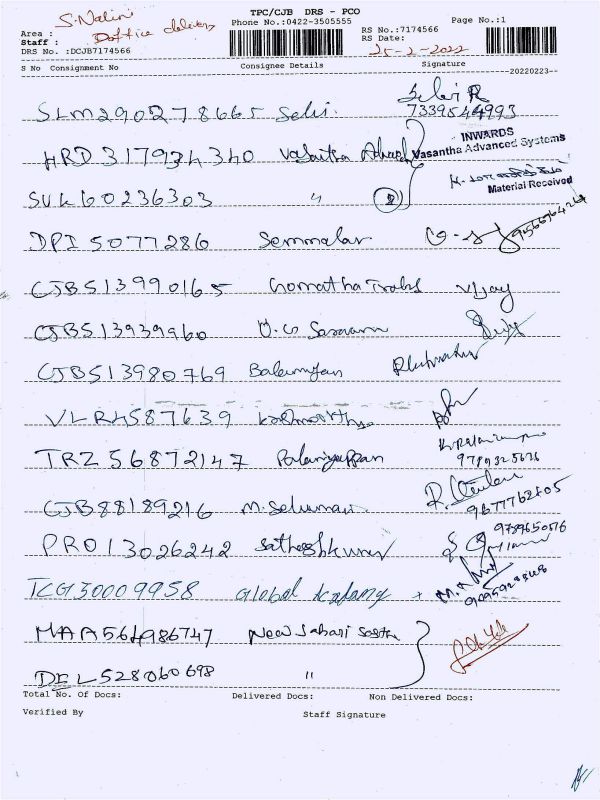 TPC/CJB DRS - PCO
Phone No.:0422-3505555
Page No.:1
S. Nalini
Doffice delivery
Area :
Staff :
DRS No. :DCJB7174566
RS No.:7174566
RS Date:
25-2-2022
S No Consignment No Consignee Details Signature
--20220223--
SLM290278665 Selvi.
Selvi R
7339544993
HRD317934340 Vasantha Advanced
INWARDS
Vasantha Advanced Systems
Material Received
SVK60236303 〃 (2)
DPI5077286 Semmalar
CJB513990165 Gomatha Vijay
CJB513939960
CJB513980769
VLR4587639
TRZ56872147 Palaniyappan
9789325676
CJB88189216 M. Selvamani
9677762405
PRO13026242 Satheshkumar
9789650516
TCG30009958 Global Academy
MAA564986747 New Sabari
DEL528060698 〃
Total No. Of Docs: Delivered Docs: Non Delivered Docs:
Verified By Staff Signature